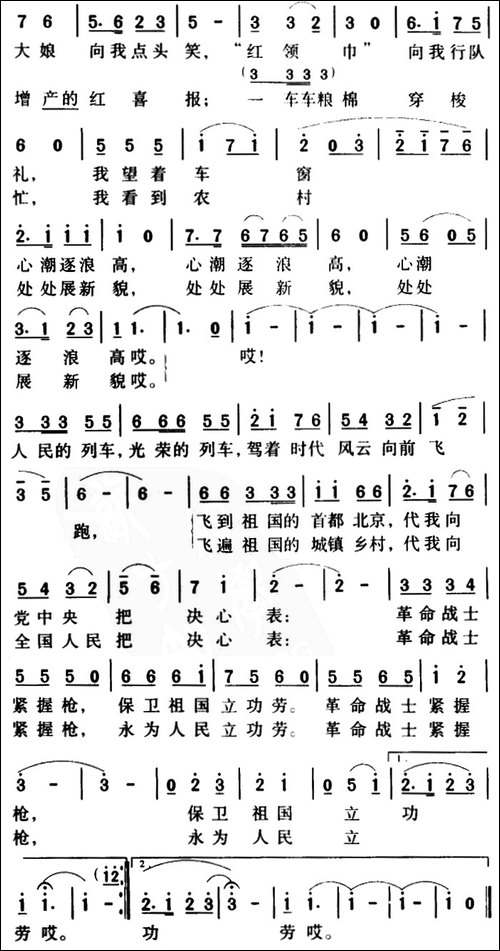 7 6 | 5·6 2 3 | 5 - | 3 3 2 | 3 0 | 6·i 7 5 |
大娘 向我点头 笑，“红 领 巾” 向我行队
(3 3 3 3)
增产的 红 喜 报；一 车车粮棉 穿 梭
6 0 | 5 5 5 | i 7 i | 2 0 3 | 2 i 7 6 |
礼， 我望着 车 窗
忙， 我看到 农 村
2·i i i | i 0 | 7·7 6 7 6 5 | 6 0 | 5 6 0 5 |
心潮逐浪 高， 心潮 逐 浪 高， 心潮
处处展新 貌， 处处 展 新 貌， 处处
3·1 2 3 | 1 1· | 1· 0 | i - | i - | i - | i - |
逐 浪 高哎。 哎！
展 新 貌哎。
3 3 3 5 5 | 6 6 6 5 5 | 2 i 7 6 | 5 4 3 2 | 1 2 |
人民的 列车，光荣的 列车，驾着 时代 风云 向前 飞
3 5 | 6 - | 6 - | 6 6 3 3 3 | i i 6 6 | 2·i 7 6 |
跑， 飞到 祖国的 首都 北京，代我向
飞遍 祖国的 城镇 乡村，代我向
5 4 3 2 | 5 6 | 7 i | 2 - | 2 - | 3 3 3 4 |
党中央 把 决心 表： 革命战士
全国人民 把 决心 表： 革命战士
5 5 5 0 | 6 6 6 i | 7 5 6 0 | 5 5 5 5 | i 2 |
紧握枪， 保卫祖国 立功劳。 革命战士 紧握
紧握枪， 永为人民 立功劳。 革命战士 紧握
3 - | 3 - | 0 2 3 | 2 i | 0 5 i | 2·i 2 3 |
1.
枪， 保卫 祖国 立 功
枪， 永为 人民 立
(i 2
2.
i i· | i - :| 2·i 2 3 | 3 - | i i· | i - | i - |
劳哎。 功 劳哎。